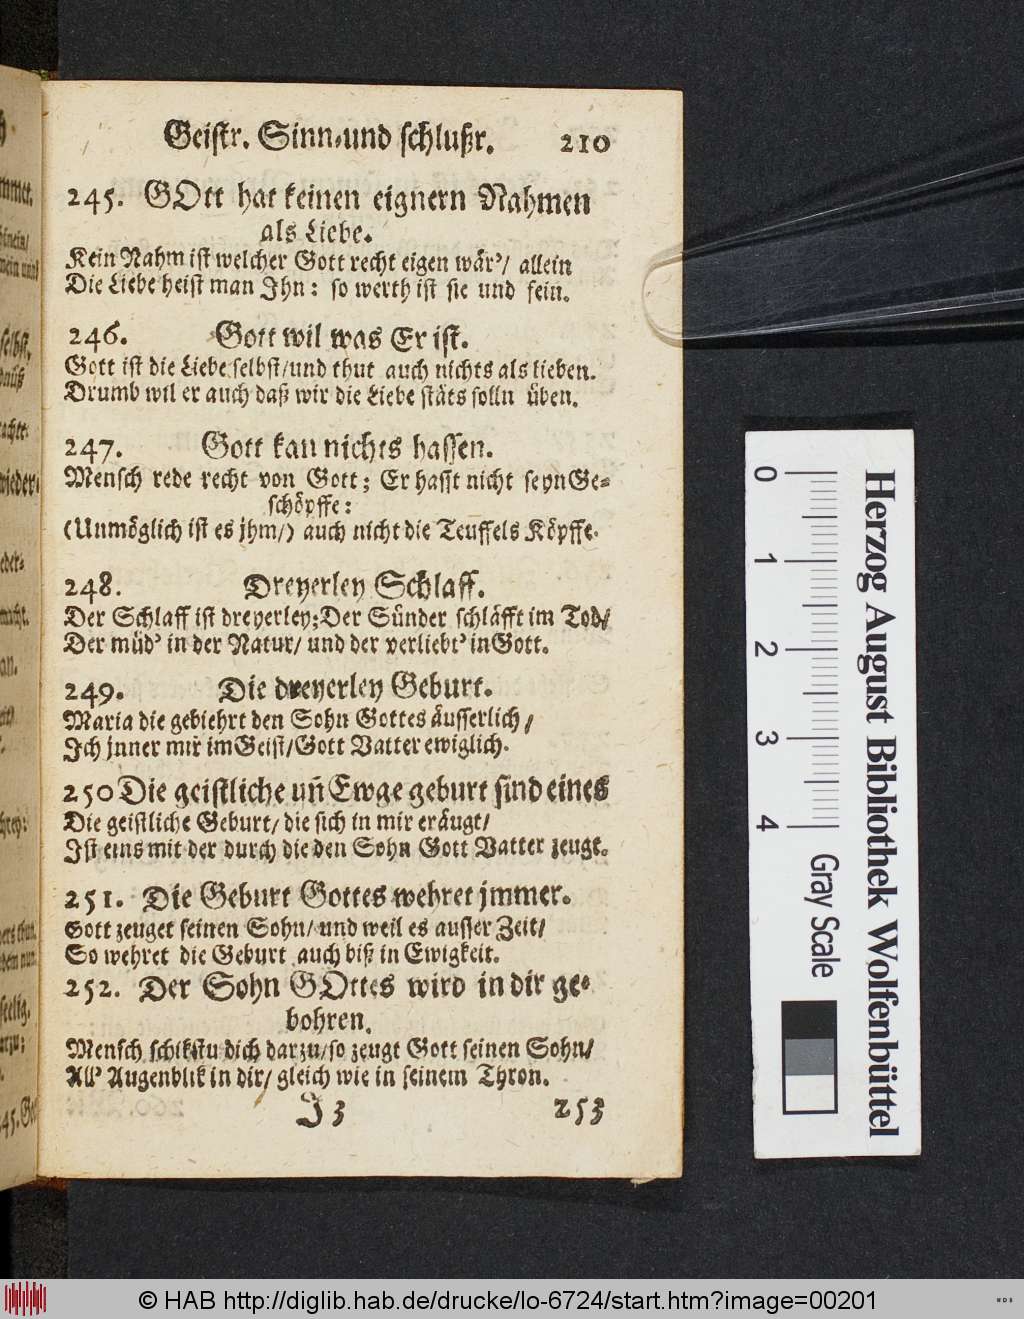 Geistr. Sinn-und schlußr. 210
245. GOtt hat keinen eignern Nahmen
als Liebe.
Kein Nahm ist welcher Gott recht eigen wär'/ allein
Die Liebe heist man Jhn: so werth ist sie und fein.
246. Gott wil was Er ist.
Gott ist die Liebe selbst/und thut auch nichts als lieben.
Drumb wil er auch daß wir die Liebe stäts solln üben.
247. Gott kan nichts hassen.
Mensch rede recht von Gott; Er hasst nicht seyn Ge-
schöpffe:
(Unmöglich ist es jhm/) auch nicht die Teuffels Köpffe.
248. Dreyerley Schlaff.
Der Schlaff ist dreyerley; Der Sünder schläfft im Tod/
Der müd' in der Natur/ und der verliebt' in Gott.
249. Die dreyerley Geburt.
Maria die gebiehrt den Sohn Gottes äusserlich/
Jch jnner mir im Geist/Gott Vatter ewiglich.
250 Die geistliche uñ Ewge geburt sind eines
Die geistliche Geburt/ die sich in mir eräugt/
Jst eins mit der durch die den Sohn Gott Vatter zeugt.
251. Die Geburt Gottes wehret jmmer.
Gott zeuget seinen Sohn/ und weil es ausser Zeit/
So wehret die Geburt auch biß in Ewigkeit.
252. Der Sohn GOttes wird in dir ge-
bohren.
Mensch schikstu dich darzu/so zeugt Gott seinen Sohn/
All' Augenblik in dir/ gleich wie in seinem Thron.
J 3 253
0 1 2 3 4 Gray Scale
Herzog August Bibliothek Wolfenbüttel
© HAB http://diglib.hab.de/drucke/lo-6724/start.htm?image=00201